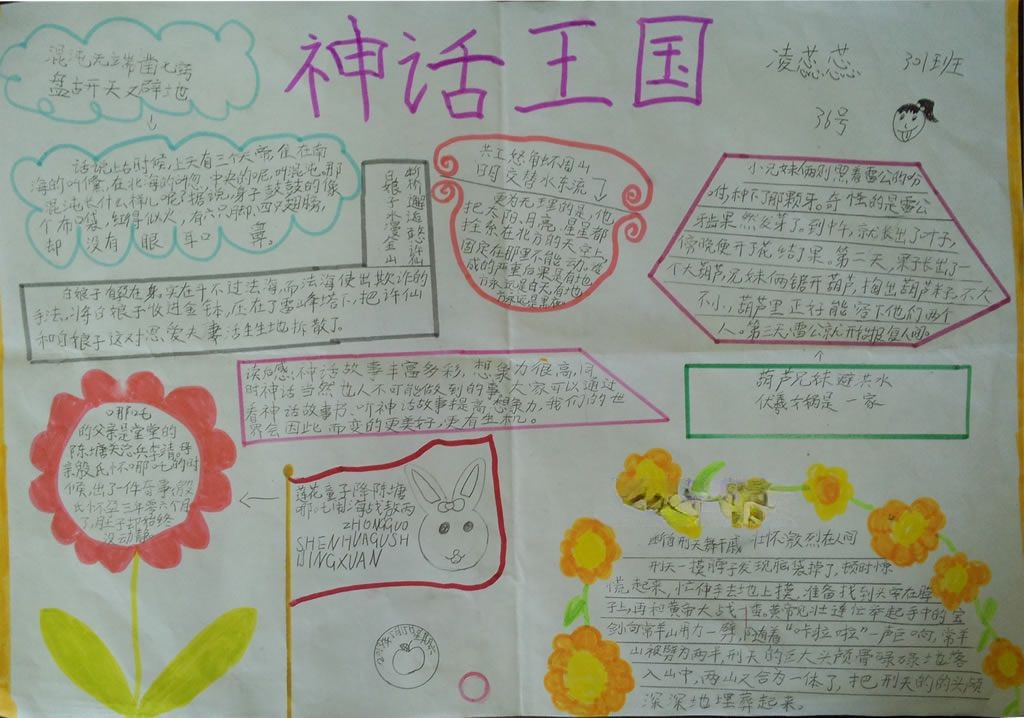 神话王国
凌蕊蕊
301班
36号
混沌无端凿七窍
盘古开天又辟地
话说上古时候,上天有三个天帝,住在南
海的叫儵,在北海的叫忽,中央的呢,叫混沌。那
混沌长什么样儿呢?据说,身子鼓鼓的像
个布口袋,红得似火,有六只脚,四只翅膀,
却没有眼耳口鼻。
断桥邂逅悲许仙
白娘子水漫金山
白娘子有段在身,实在斗不过法海,而法海使出欺诈的
手法,将白娘子收进金钵,压在了雷山峰塔下,把许仙
和白娘子这对恩爱夫妻活生生地拆散了。
共工怒角坏周山
日月交替水东流
更为无理的是,他
把太阳,月亮,星星都
拴系在北方的天空上,
固定在那里不能动,造
成的严重后果是有地
方永远是白天,有地
方永远是黑夜。
小兄妹俩别照着雷公的吩
咐,种下那颗牙。奇怪的是雷公
牙果然发芽了。到中午,就长出了叶子,
傍晚便开了花结了果。第二天,果子长出了一
个大葫芦,兄妹俩锯开葫芦,掏出葫芦籽。不大
不小,葫芦里正好能容下他们两个
人。第三天,雷公就开始报复人间。
葫芦兄妹避洪水
伏羲女娲是一家
读后感:神话故事丰富多彩,想象力很高,同
时神话当然也人不可能做到的事,大家可以通过
看神话故事书、听神话故事提高想象力,我们的世
界会因此而变的更美好,更有生机。
哪吒
的父亲是堂堂的
陈塘关总兵李靖。母
亲殷氏怀哪吒的时
候,出了一件奇事:殷
氏怀孕三年零六个月
了,肚子却始终
没动静。
莲花童子除陈塘
哪吒闹海战敖丙
ZHONGGUO
SHENHUAGUSH
IJINGXUAN
断首刑天舞干戚 壮怀激烈在人间
刑天一摸脖子发现脑袋掉了,顿时惊
慌起来,忙伸手去地上摸,准备找到头安在脖
子上,再和黄帝大战一番。黄帝见壮连忙举起手中的宝
剑向常羊山用力一劈,随着“咔啦啦”一声巨响,常羊
山被劈为两半,刑天的巨大头颅骨碌碌地落
入山中,两山又合为一体了,把刑天的的头颅
深深地埋葬起来。